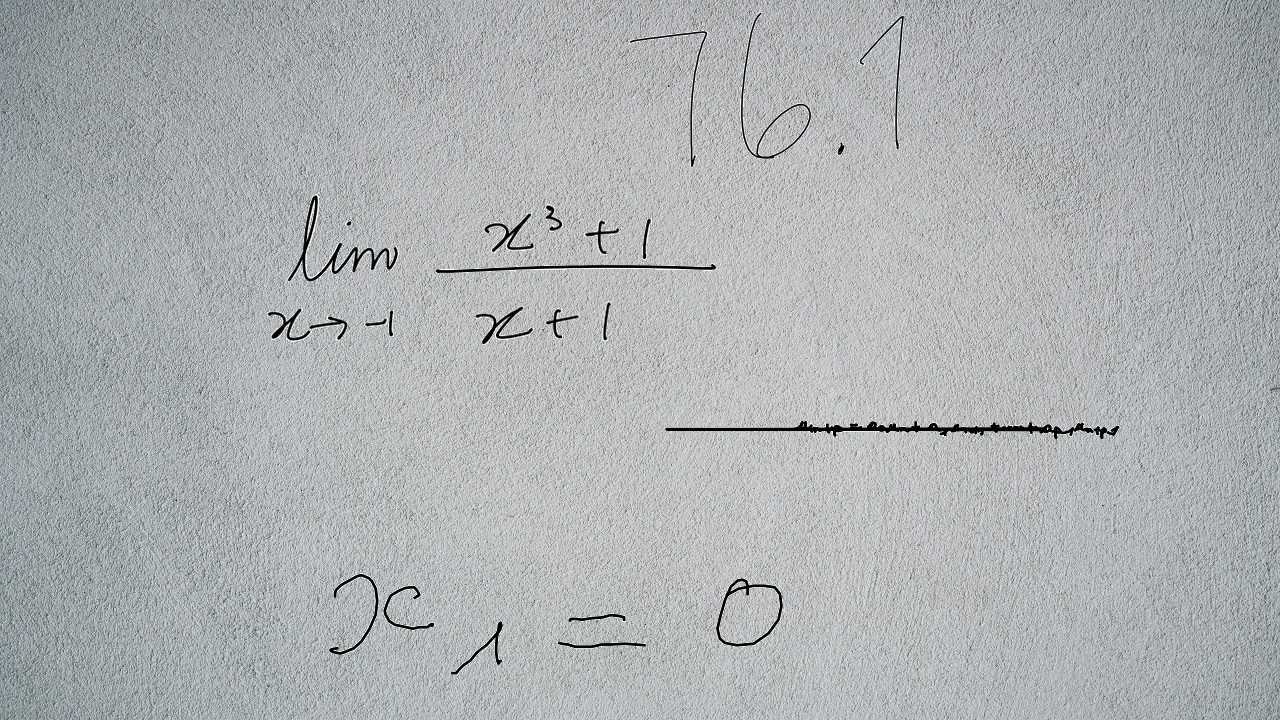 76.1
lim x→-1 (x³+1)/(x+1)
x₁ = 0